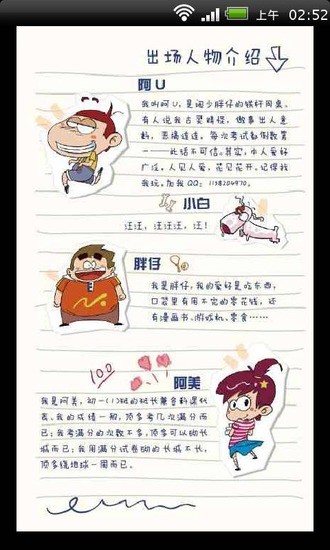 上午 02:52
出场人物介绍
阿U
我叫阿U,是阔少胖仔的铁杆同桌。
有人说我古灵精怪,做事出人意
料,恶搞连连,每次考试都倒数第
一——此话不可信。其实,本人爱好
广泛,人见人爱,花见花开。记得找
我玩,加我QQ:1138204970。
小白
汪汪,汪汪汪汪,汪!
胖仔
我是胖仔,我的爱好是吃东西,
口袋里有用不完的零花钱,还
有漫画书、游戏机、零食……
100
阿美
我是阿美,初一(1)班的班长兼各科课代
表。我的成绩一般,顶多考几次满分而
已;我考满分的次数不多,顶多可以砌长
城而已;我用满分试卷砌的长城不长,
顶多绕地球一周而已。